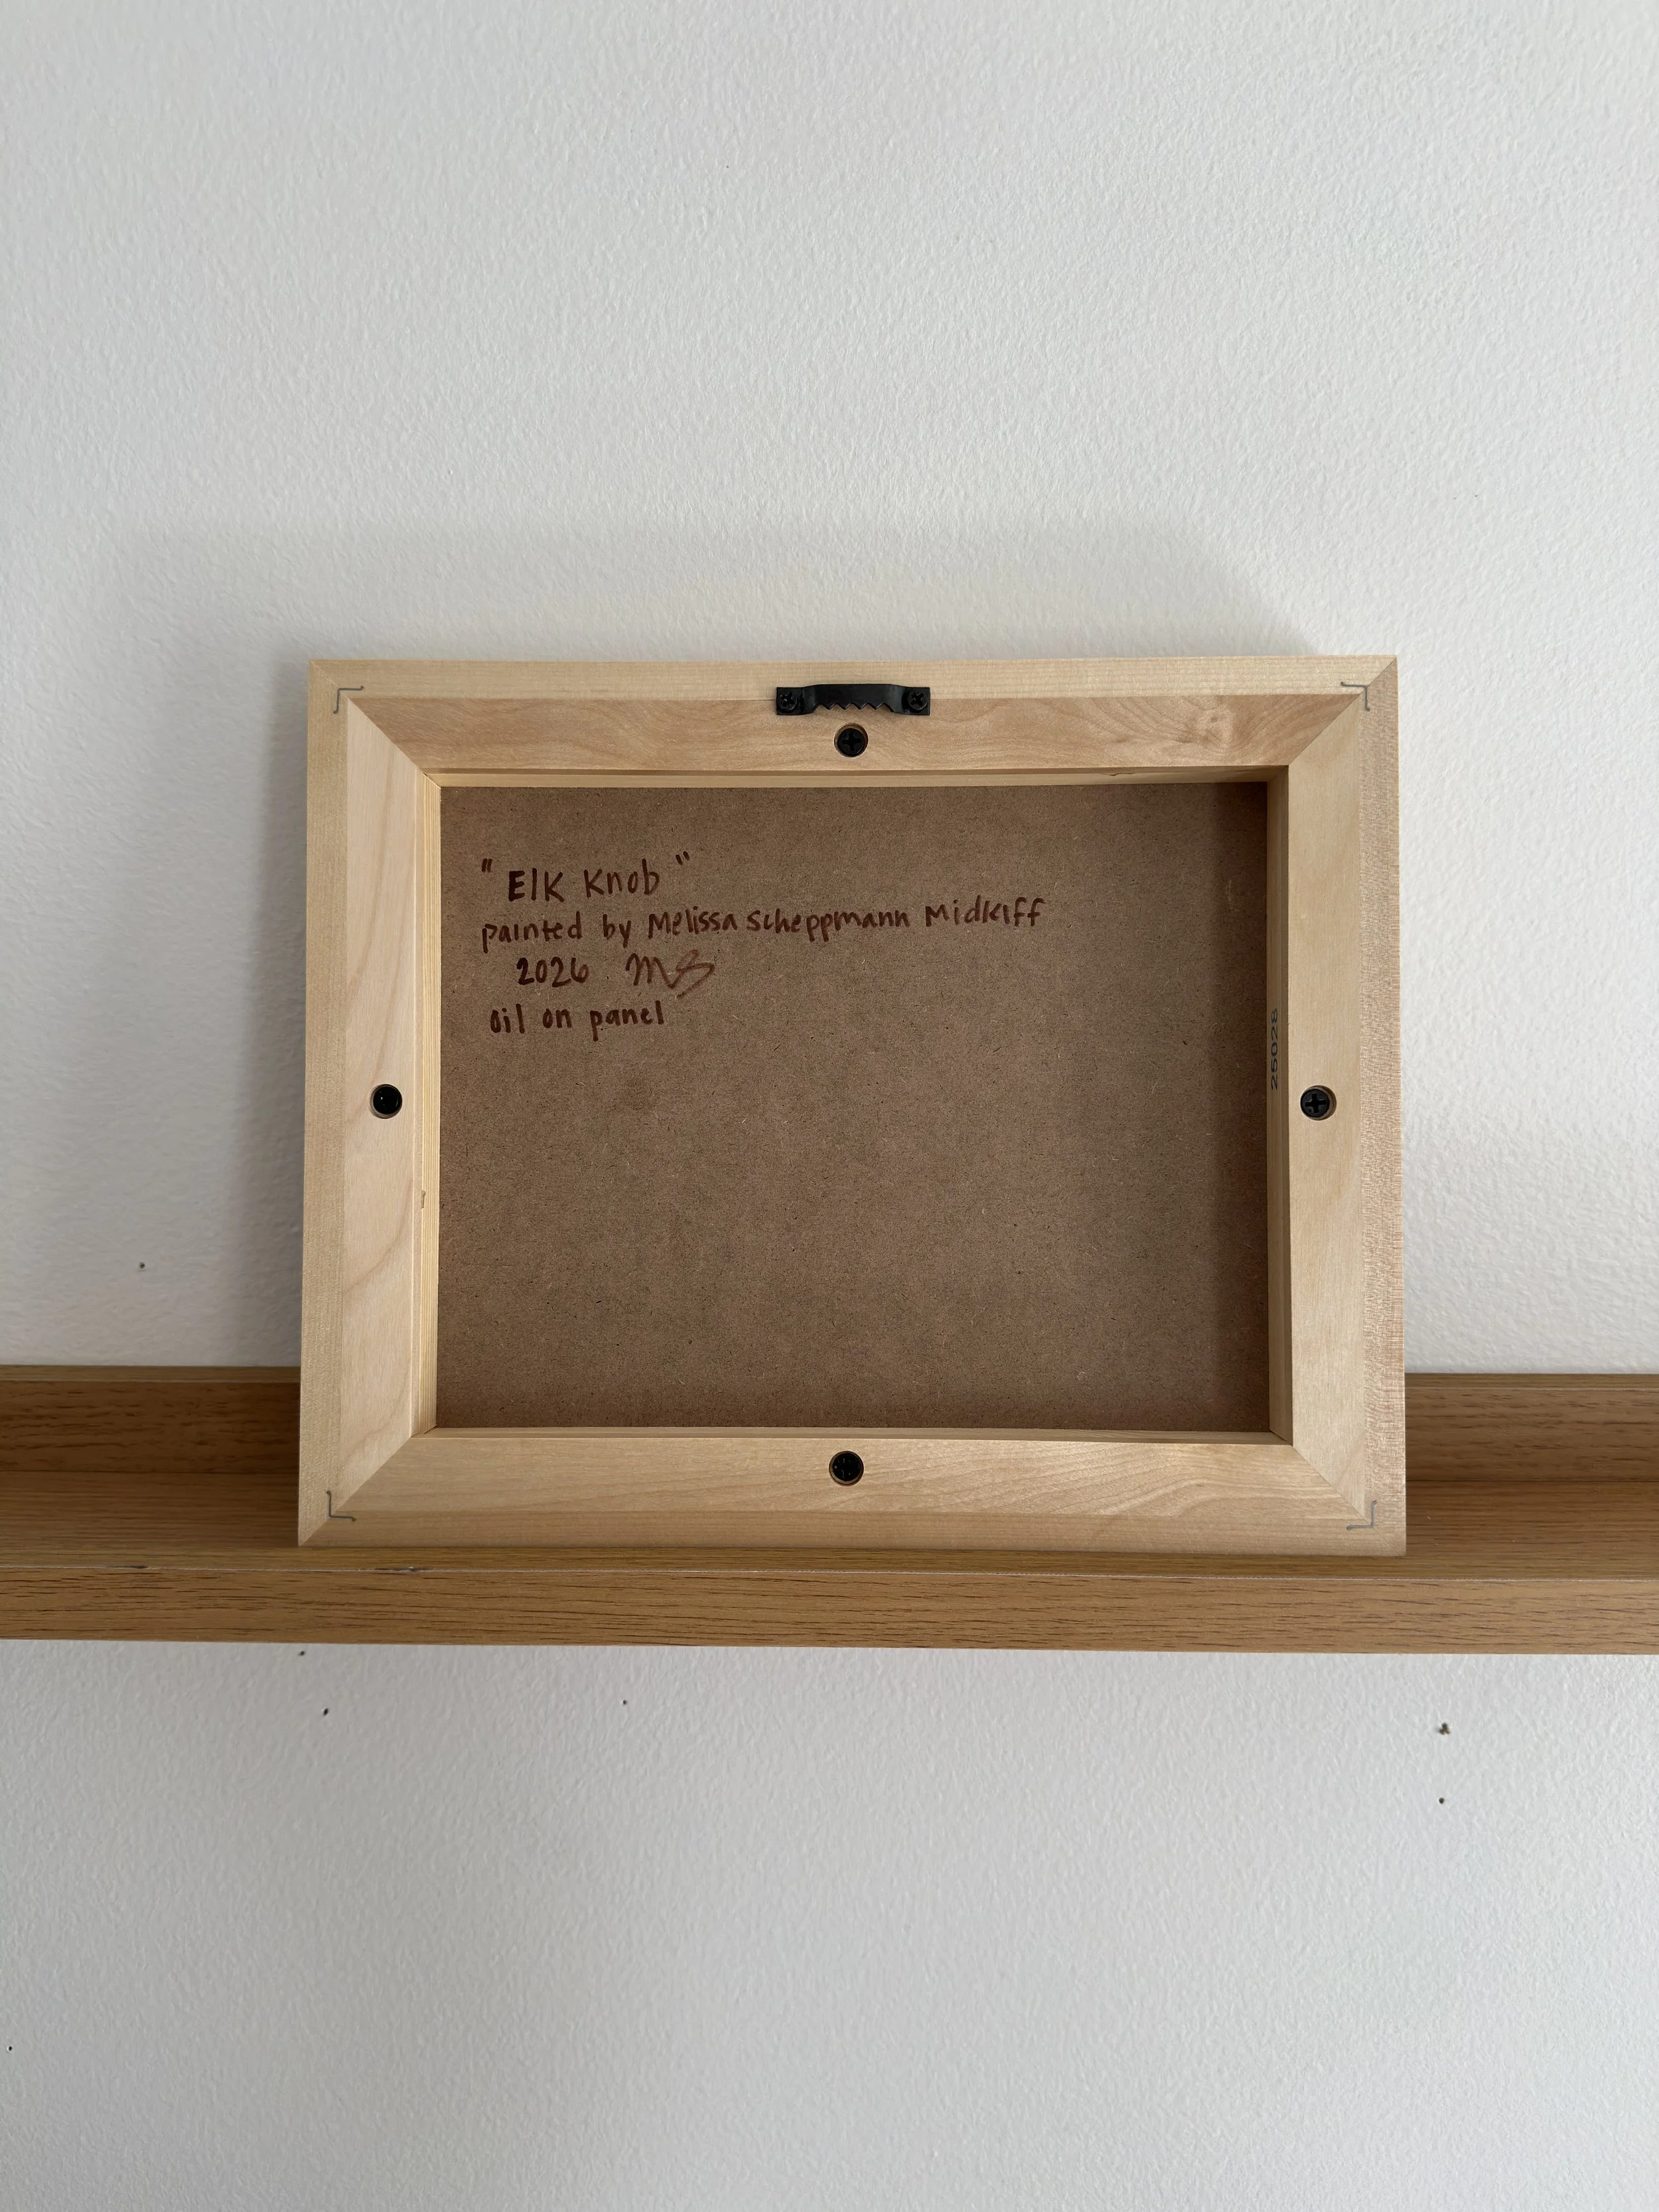 "Elk Knob"
painted by Melissa Scheppmann Midkiff
2026 MS
oil on panel
25028